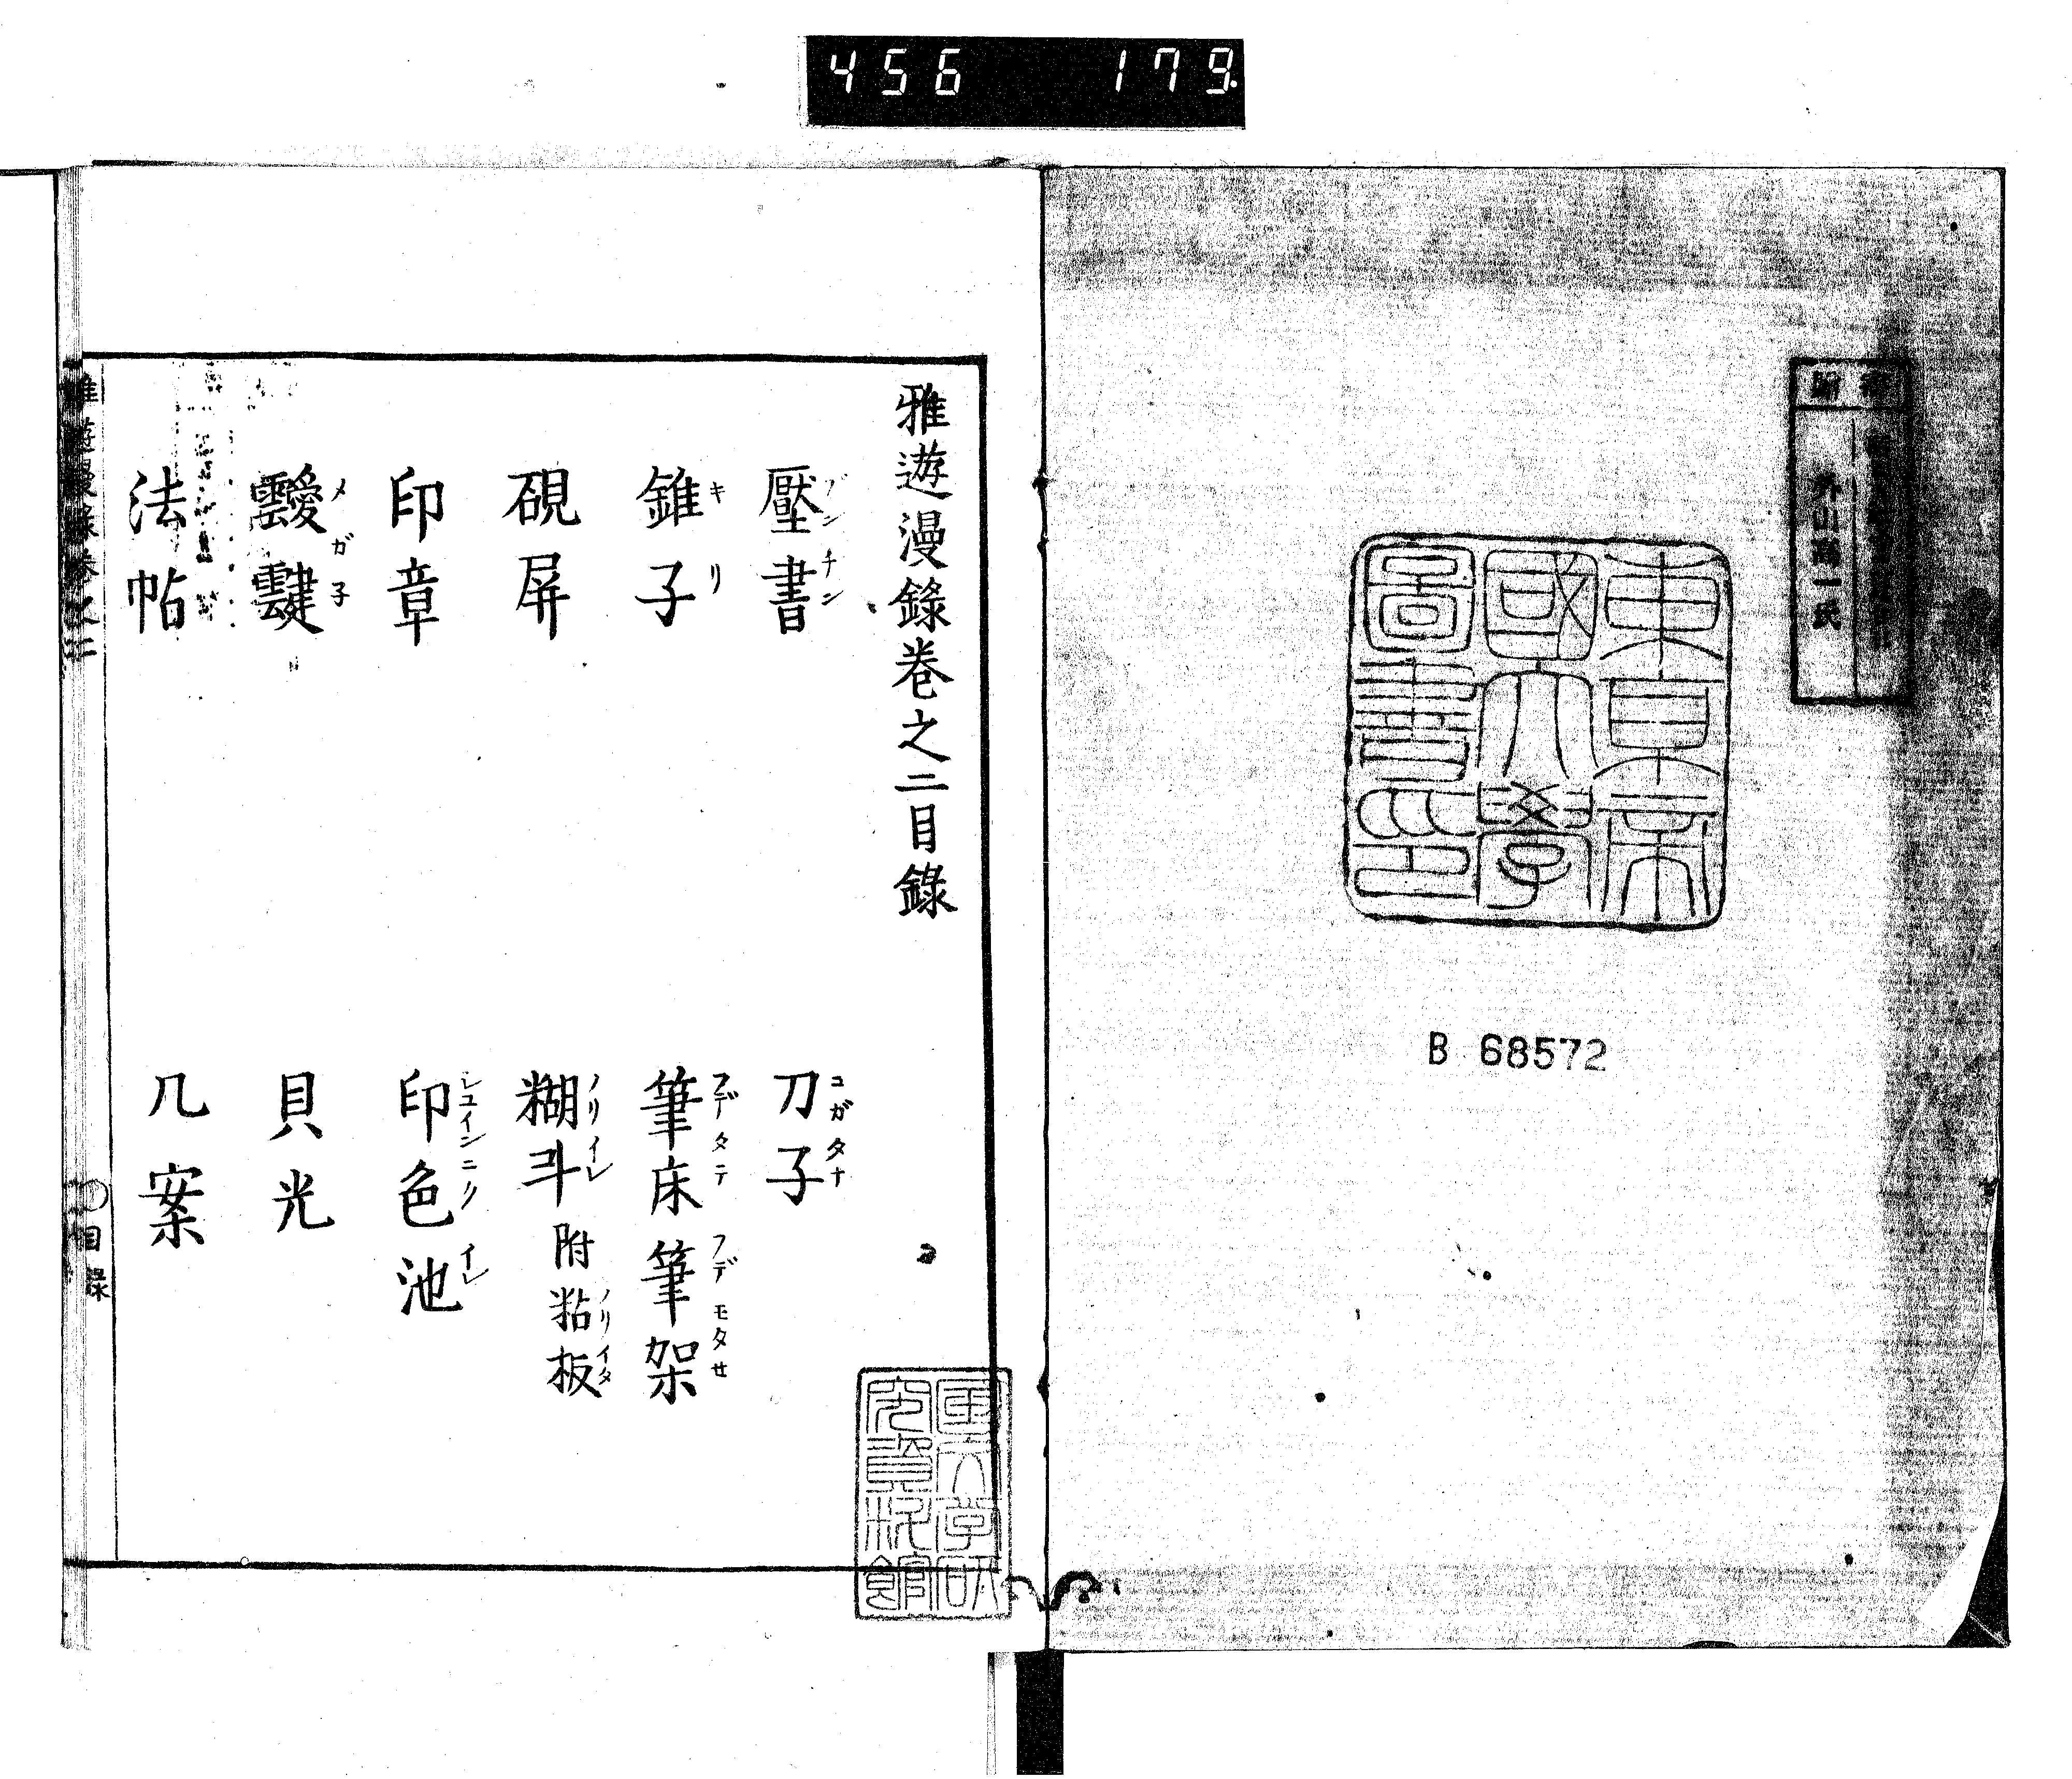 456 179
外山高一氏
東京帝
國大學
圖書印
B 68572
雅遊漫錄卷之二目錄
壓書 ブンチン
刀子 コガタナ
錐子 キリ
筆床 フデタテ 筆架 フデモタせ
硯屏
糊斗 ノリイレ 附粘板 ノリイタ
印章
印色池 シユインニクイレ
靉靆 メガ子
貝光
法帖
几案
雅遊漫錄卷之二
〇目錄
国文学研
究資料館